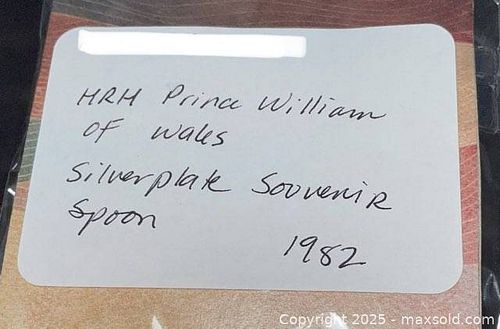 HRH Prince William
of Wales
Silverplate Souvenir
Spoon
1982
Copyright 2025 - maxsold.com